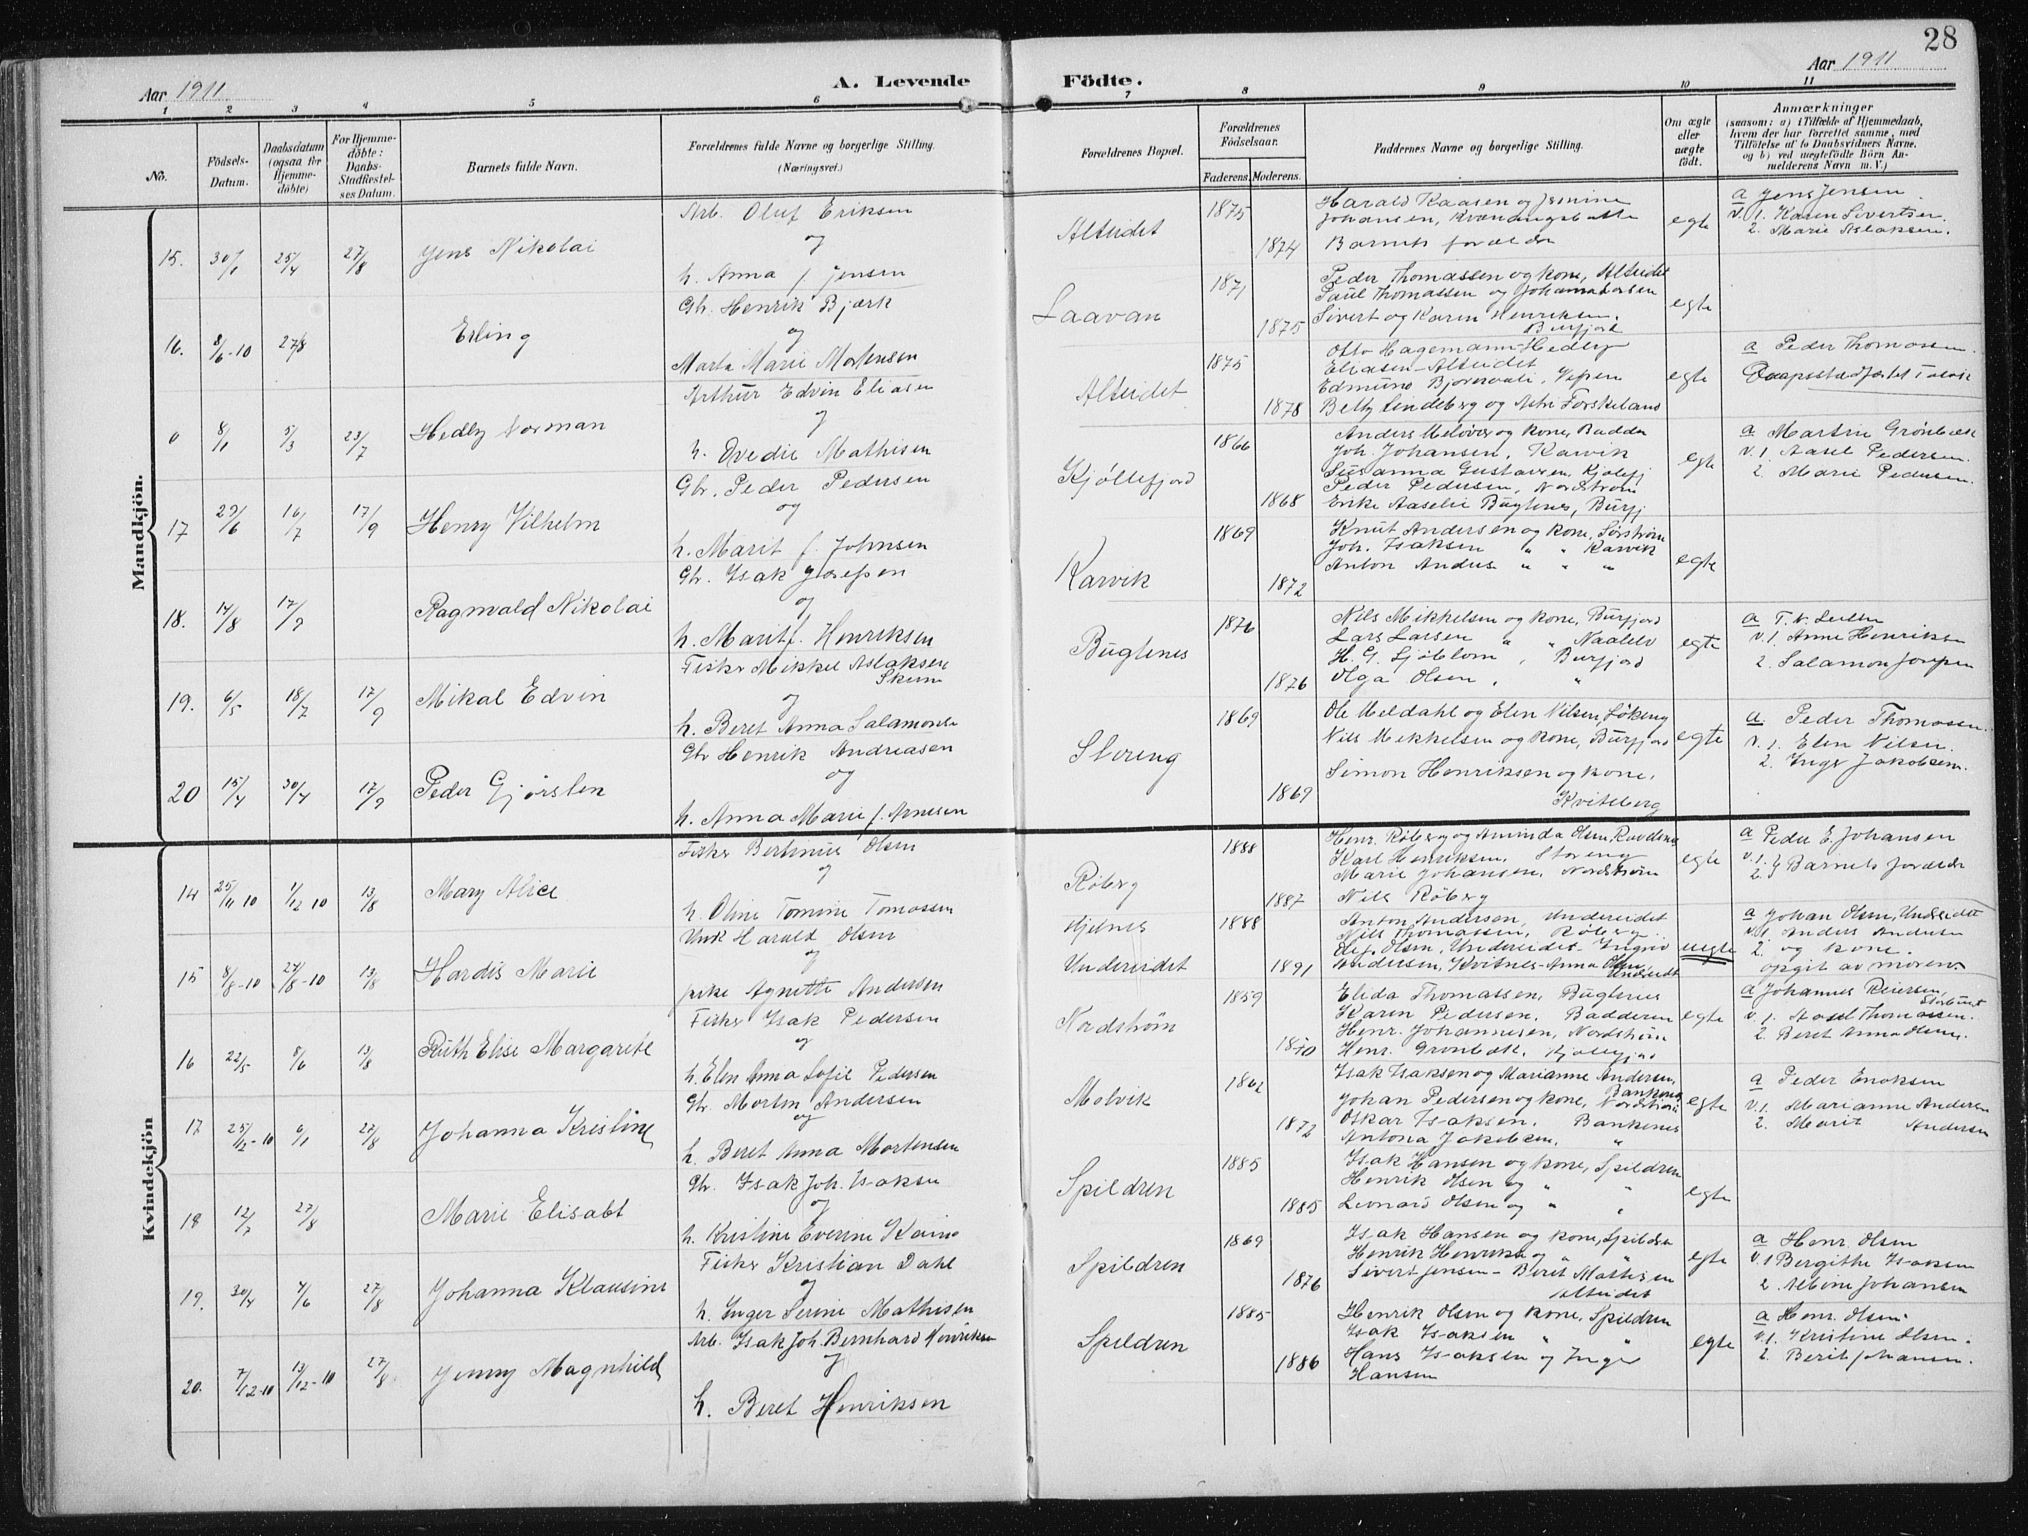 28
Aar 1911
A. Levende Födte.
Aar 1911
1 2 3 4 5 6 7 8 9 10 11
No.
Födsels-Datum.
Daabsdatum (ogsaa for Hjemmedöbte)
For Hjemmedöbte: Daabs Stadfæstelses Datum.
Barnets fulde Navn.
Forældrenes fulde Navne og borgerlige Stilling. (Næringsvei.)
Forældrenes Bopæl.
Forældrenes Födselsaar.
Faderens. Moderens.
Faddernes Navne og borgerlige Stilling.
Om ægte eller uægte födt.
Anmærkninger
(saasom: a) i Tilfælde af Hjemmedaab,
hvem der har forrettet samme, med
Tilföielse af to Daabsvidners Navne,
og b) ved uægtefödte Börn Anmelderens Navn m. V.)
Mandkjön.
15. 30/1 25/4 27/8 Jens Nikolai
Arb. Oluf Eriksen
og
h. Anna f. Jensen
Alteidet 1875 1874
Harald Kaasen og Jemine
Johansen, Kvænangsbotten
Barnets forældre
egte
a Jens Jensen
v. 1. Karen Sivertsen.
2. Marie Aslaksen.
16. 8/6-10 27/8 Erling
Gbr. Henrik Bjærk
og
Marta Marie Mortensen
Laavan 1871 1875
Peder Thomassen og kone, Alteidet
Paul Thomassen og Johanna Larsen
Sivert og Karen Henriksen.
Burfjord
egte
0 8/1 5/3 23/7 Hedly Norman
Arthur Edvin Eliasen
og
h. Ovedie Mathisen
Alteidet 1875 1878
Otto Hagemann-Hedley
Eliasen-Alteidet
Edmund Bjorvali,
Betty Lindeberg og
egte
a Peder Thomassen.
17 29/6 16/7 17/9 Henry Vilhelm
Gbr. Peder Pedersen
og
h. Marit f. Johnsen
Kjøllefjord 1866 1868
Anders Meløver og kone, Badder
Joh. Johansen, Karvik
Susanna Gustavsen, Kjølefj
Peder Pedersen, Nordstrøm
Erike Aaselie Buglenes, Burfj
egte
a Martin Grønbæk
v. 1 Aasel Pedersen.
2. Marie Pedersen.
18. 14/8 17/9 Ragnvald Nikolai
Gbr. Isak Josefsen
og
h. Marit f. Henriksen
Karvik 1869 1872
Knut Andersen og kone, Sørstrøm
Joh. Isaksen " " Karvik
Anton Anders " " "
egte
19. 6/5 18/7 17/9 Mikal Edvin
Fisker Mikkel Aslaksen
Skum
og
h. Beret Anna Salamonse
Buglenes 1876 1876
Nils Mikkelsen og kone, Burfjord
Lars Larsen " " Naalelv
H. G. Sjøblom, Burfjord
Olga Olsen, "
egte
a T. N.
v. 1. Anne Henriksen
2. Salamon Josepsen
20 15/4 30/4 17/9 Peder Gjørsten
Gbr Henrik Andreasen
og
h. Anna Marie f. Arnesen
Storeng 1869 1869
Ole Meldahl og Elen Nilsen, Løkeng
Nils Mekkelsen og kone, Burfjord
Simon Henriksen og kone,
Kviteberg
egte
a. Peder Thomassen.
v. 1. Elen Nilsen.
2. Inger Jakobsen.
Kvindekjön
14 25/11 10 1/12-10 13/8 Mary Alice
Fisker Bertinius Olsen
og
h. Oline Tomine Tomassen
Røberg 1888 1887
Henr. Røberg og Aminda Olsen,
Karl Henriksen, Storeng
Marie Johansen, Nordstrøm
Nils Røberg
egte
a Peder E. Johansen
v. 1. } Barnets forældre
2. }
15 8/8-10 27/8-10 13/8 Hardis Marie
Unk Harald Olsen
og
pike Agnette Andersen
Hjelnes
Undereidet 1888 1891
Anton Andersen, Undereidet
Nils Thomassen, Røberg
Olef. Olsen, Undereidet- Ingvo
Andersen, Kvitnes-Anna Olsen,
Undereidet
uegte
a Johan Olsen, Undereidet
v. 1 Anders Andersen
2 og kone.
opgit av moren.
16 22/5 8/6 13/8 Ruth Elise Margarete
Fisker Isak Pedersen
og
h. Elen Anna Sofie Pedersen
Nordstrøm 1859 1870
Elida Thomassen, Buglenes
Karen Pedersen, Badderen
Henr. Johannesen, Nordstrøm
Henr. Grønbæk, Kjøllefjord
egte
a Johannes Reiersen,
Storbugt
v. 1. Aasel Thomassen.
2. Beret Anna Olsen.
17 25/12-10 6/1 27/8 Johanna Kristine
Gbr. Mortin Andersen
og
h. Beret Anna Mortensen
Molvik 1862 1872
Isak Isaksen og Marianne Andersen,
Bankenes
Johan Pedersen og kone, Nordstrøm
Oskar Isaksen. Bankenes
Antona Jakobsen. "
egte
a Peder Enoksen
v. 1. Marianne Andersen
2. Marit Andersen
18 12/7 27/8 Marie Elisabt
Gbr. Isak Joh. Isaksen
og
h. Kristine Everine Kaino
Spildren 1885 1885
Isak Hansen og kone, Spildren
Henrik Olsen og " "
Leonard Olsen og " "
egte
19. 30/4 4/6 27/8 Johanna Klausine
Fisker Kristian Dahl
og
h. Inger Serine Mathisen
Spildren 1869 1876
Isak Hansen og kone, Spildren
Henrik Henriksen og " "
Sivert Jensen- Beret Mathisen
Alteidet
egte
a Henr. Olsen
v. 1 Bergithe Isaksen
2 Albine Johansen
20. 7/12-10 13/12-10 27/8 Jenny Magnhild
Arb. Isak Joh. Bernhard Henriksen
og
h. Beret Henriksen
Spildren 1885 1886
Henrik Olsen og kone, Spildren
Isak Isaksen " "
Hans Isaksen og Inger
Hansen
egte
a Henr. Olsen.
v. 1. Kristine Olsen.
2. Berit Johansen.